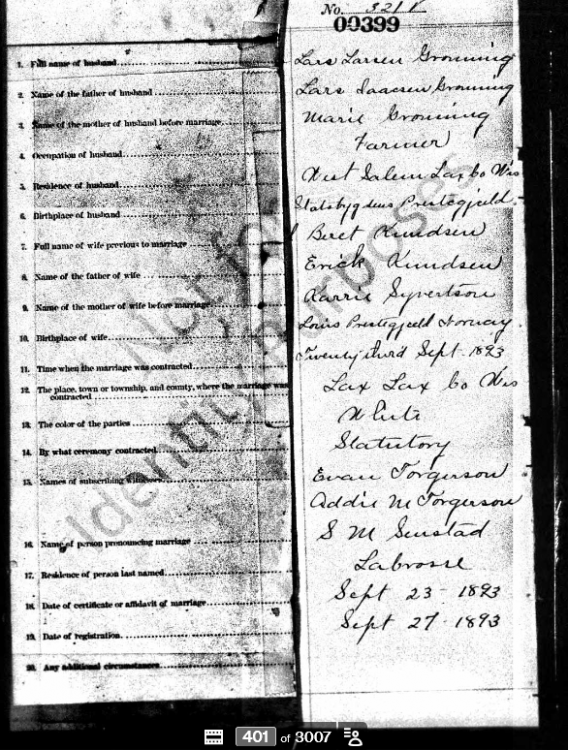 No. 321
00399
1. Full name of husband Lars Larsen Gronning
2. Name of the father of husband Lars Isacsen Gronning
3. Name of the mother of husband before marriage Marie Gronning
4. Occupation of husband Farmer
5. Residence of husband West Salem Lax Co Wis
6. Birthplace of husband Prestegjeld
7. Full name of wife previous to marriage Beret Knudsen
8. Name of the father of wife Erick Knudsen
9. Name of the mother of wife before marriage Karrie Syvertson
10. Birthplace of wife Prestegjeld Norway
11. Time when the marriage was contracted Twenty third Sept. 1893
12. The place, town or township, and county, where the marriage was
contracted Lax Lax Co Wis
13. The color of the parties White
14. By what ceremony contracted Statutory
15. Names of subscribing witnesses Evan Torgerson
Addie M Torgerson
16. Name of person pronouncing marriage S M
17. Residence of person last named Labrosse
18. Date of certificate or affidavit of marriage Sept 23 - 1893
19. Date of registration Sept 27 - 1893
20. Any additional circumstances
Not for
Identity purposes
401 of 3007